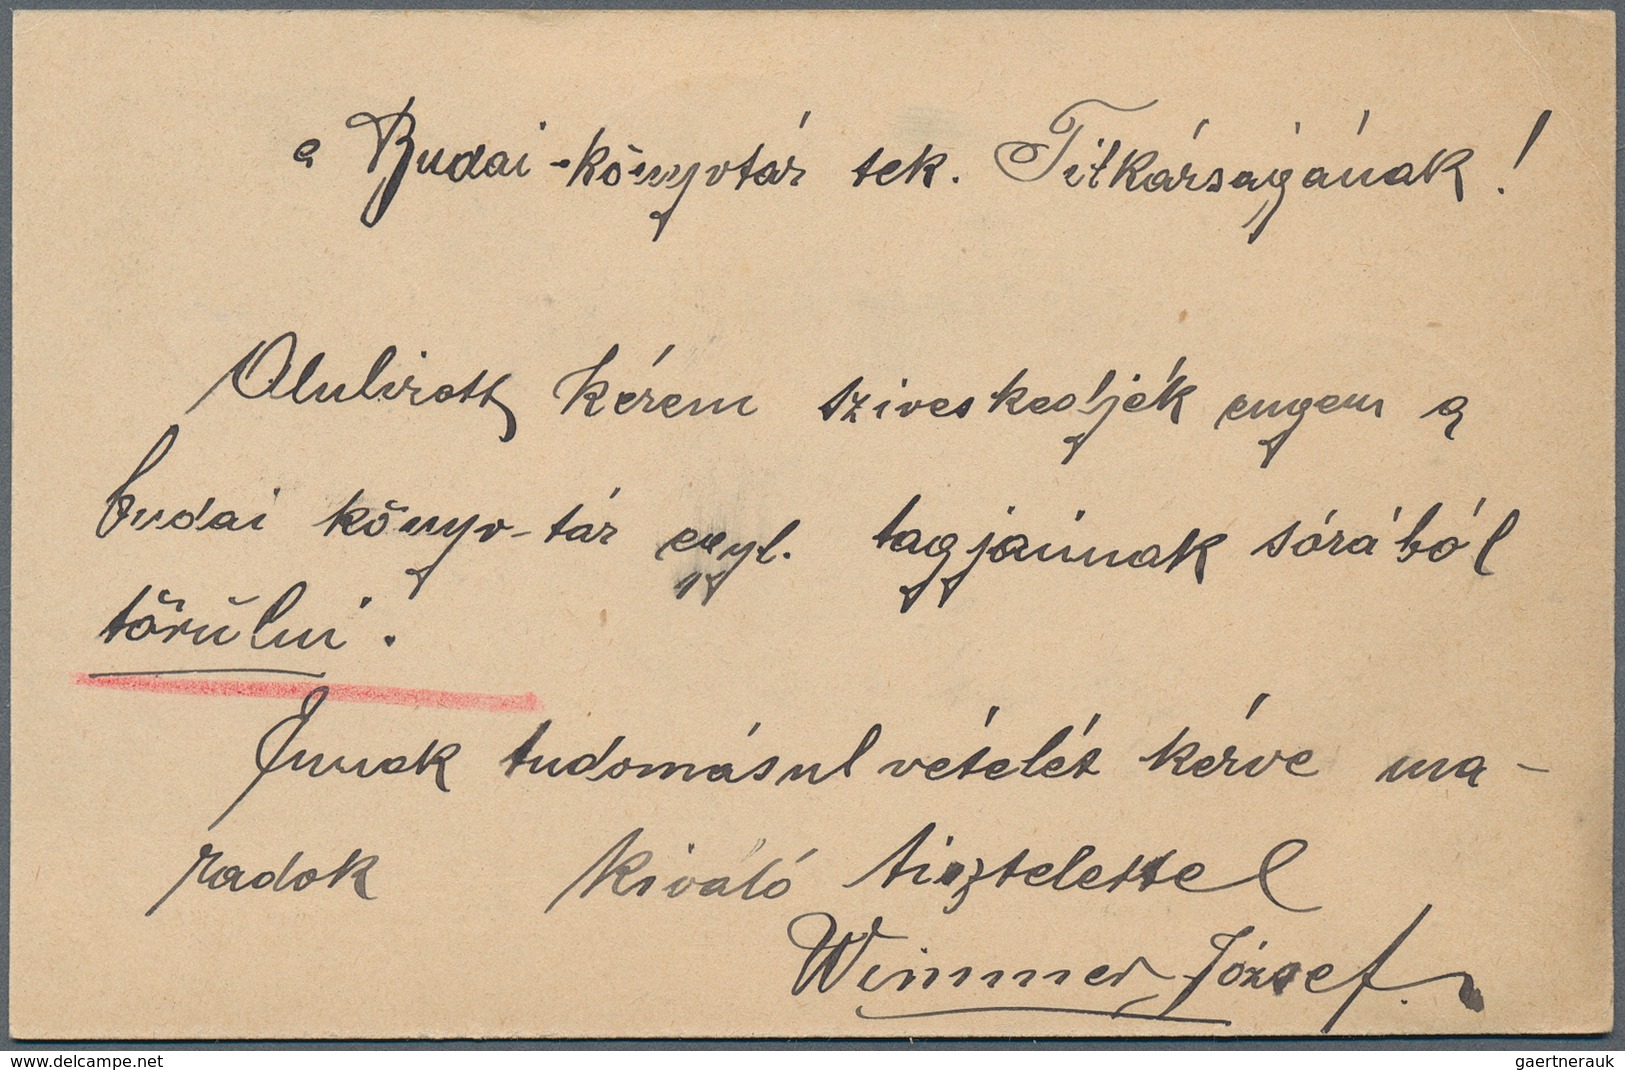 a Budai-könyvtár tek. Titkárságának!
Alulirott kérem sziveskedjék engem a
budai könyv-tár egyl. tagjainak sórából
törülni.
Ennek tudomásul vételét kérve ma-
radok kiváló tisztelettel
Wimmer József
www.delcampe.net
gaertnerauk